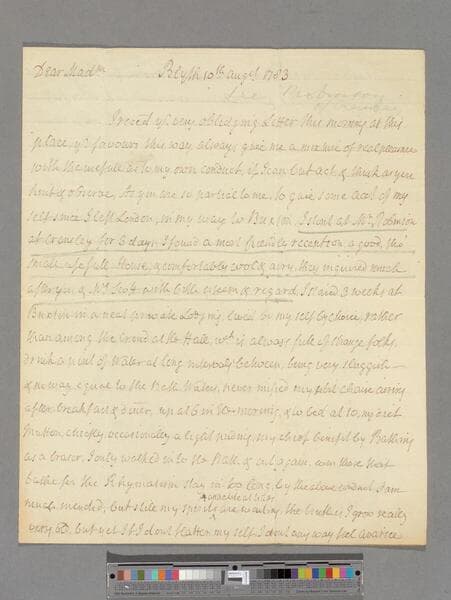 Dear Madm Blyth 10th Augst 1783
I recd yr very obledging Letter this morning at this
place, yr favours this way, always give me a mixture of real pleasure
with the usefull as to my own conduct, if I can but act, & think as you
hint & observe. As you are so partice to me, to give some acct of my
self since I left London, in my way to Buxton, I stout at Mr. Robinson
at Cransley for 6 days, I found a most friendly reception, a good, tho
small life full House, & comfortably cool & airy, they inquired much
after you & Mrs Scott with both esteem & regard. I staid 3 weeks at
Buxton in a neat private Lodging lived by my self by choice, rather
than among the Crowd at the Hall, wch is always full of strange folks,
drink a pint of Water at long intervals between, being very sluggish
& no way equal to the Bath Waters, never missed my chaise airing
after breakfast & diner, up at 6 in the morning, & to bed at 10, my diet
Mutton, chiefly, occasionally a light pudding, my chief benefit by Bathing
as a bracer. I only walked in to the Bath & out again, even those that
bathe for the Rhymatism stay in too long, by the above conduct I am
much mended, but still my spirits are wanting, the truth is I grow really
very old, but yet if I dont flatter my self I dont any way feel avarice